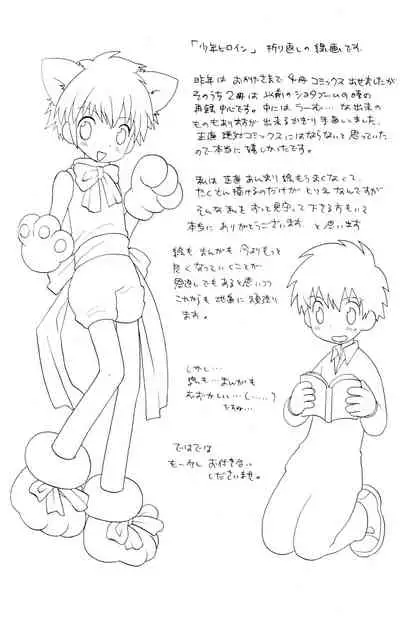 「少年ヒロイン」折り返しの線画です
昨年は おかげさまで 4冊 コミックス 出せましたが
そのうち 2冊は 以前の ショタブームの時の
再録 中心です。中には うーむ…な 出来の
ものもありますが 出来るかぎり 手直ししました。
正直 コミックスにはならないと思っていた
ので本当に嬉しかったです。
私は 正直 あんまり 絵もうまくなくて、
たくさん描けるのだけが とりえなんですが
そんな私を ずっと 見守って 下さる方もいて
本当に ありがとうございます と思います
絵も まんがも 今よりもっと
良くなっていくことが
恩返しでもあると思いつつ
これからも 地道に 頑張り
ます。
しかし…
絵も…まんがも
ですね…
ではでは
もう少し お付き合い
くださいませ。